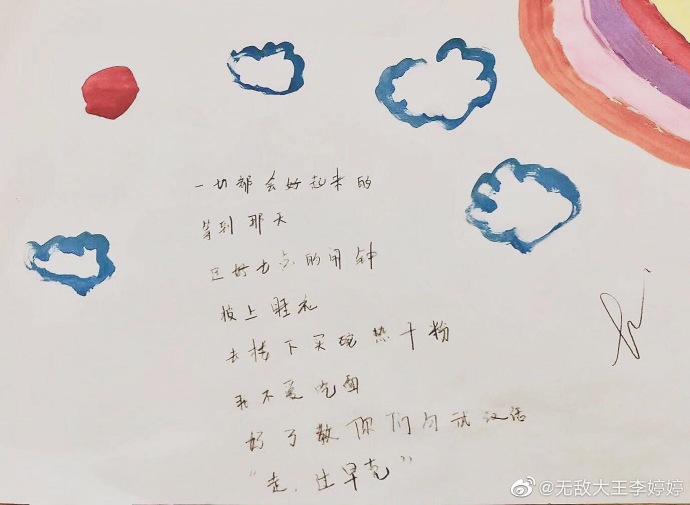 一切都会好起来的
等到那天
定好七点的闹钟
披上睡衣
去楼下买碗热干粉
我不爱吃面
好了教你们句武汉话
“走，过早克”
@无敌大王李婷婷